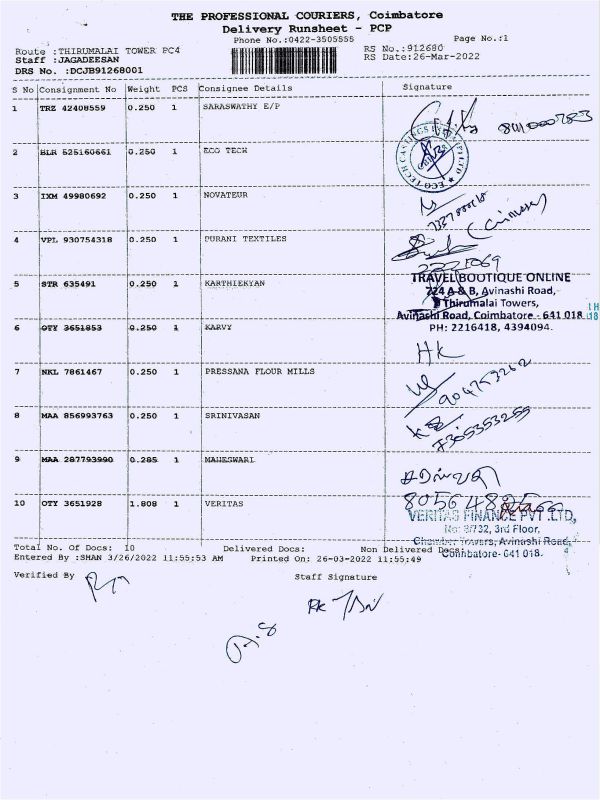 THE PROFESSIONAL COURIERS, Coimbatore
Delivery Runsheet - PCP
Phone No.:0422-3505555 Page No.:1
Route :THIRUMALAI TOWER PC4 RS No.:912680
Staff :JAGADEESAN RS Date:26-Mar-2022
DRS No. :DCJB91268001
S No Consignment No Weight PCS Consignee Details Signature
1 TRZ 42408559 0.250 1 SARASWATHY E/P
2 BLR 525160661 0.250 1 ECO TECH
ECO TECH CASTINGS
3 IXM 49980692 0.250 1 NOVATEUR
4 VPL 930754318 0.250 1 PURANI TEXTILES
5 STR 635491 0.250 1 KARTHIEKYAN
TRAVEL BOUTIQUE ONLINE
724 A & B, Avinashi Road,
Thirumalai Towers,
Avinashi Road, Coimbatore - 641 018
PH: 2216418, 4394094.
6 OTY 3651853 0.250 1 KARVY
HK
7 NKL 7861467 0.250 1 PRESSANA FLOUR MILLS
8 MAA 856993763 0.250 1 SRINIVASAN
7305353255
9 MAA 287793990 0.285 1 MAHESWARI
10 OTY 3651928 1.808 1 VERITAS
VERITAS FINANCE PVT .LTD,
No: 3/732, 3rd Floor,
Chamber Towers, Avinashi Road,
Coimbatore- 641 018.
Total No. Of Docs: 10 Delivered Docs: Non Delivered Docs:
Entered By :SHAN 3/26/2022 11:55:53 AM Printed On: 26-03-2022 11:55:49
Verified By Staff Signature